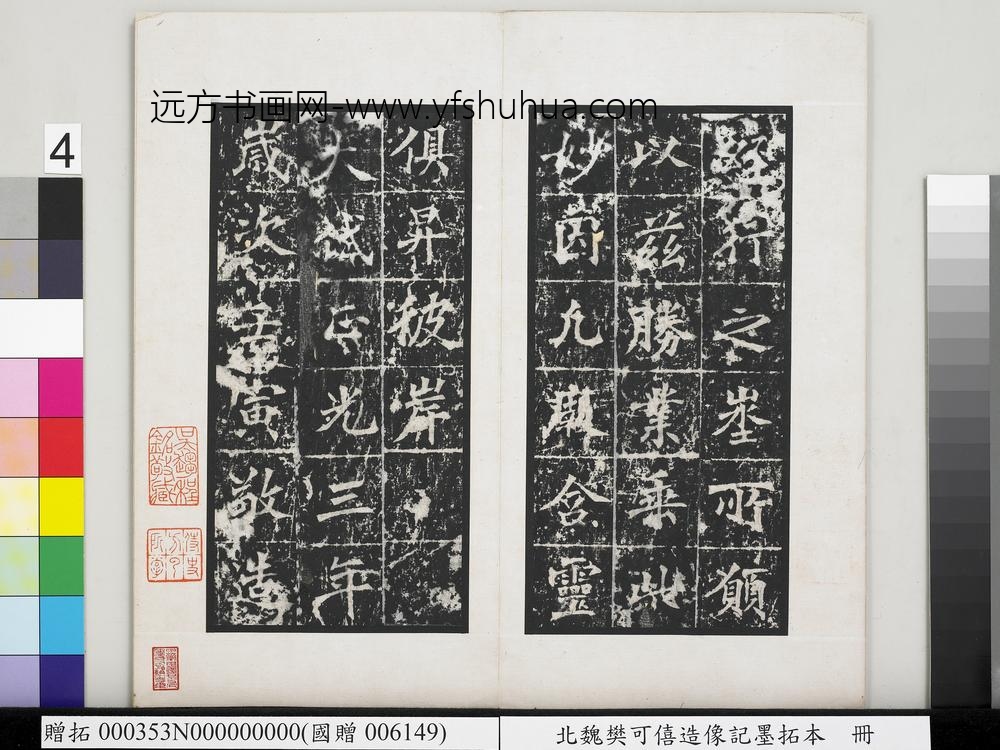 远方书画网-www.yfshuhua.com
4
經行之坐所願
以茲勝業乘此
妙因允與含靈
俱昇彼岸
大魏正光三年
歲次壬寅敬造
贈拓 000353N000000000(國贈 006149)
北魏樊可僖造像記墨拓本 冊